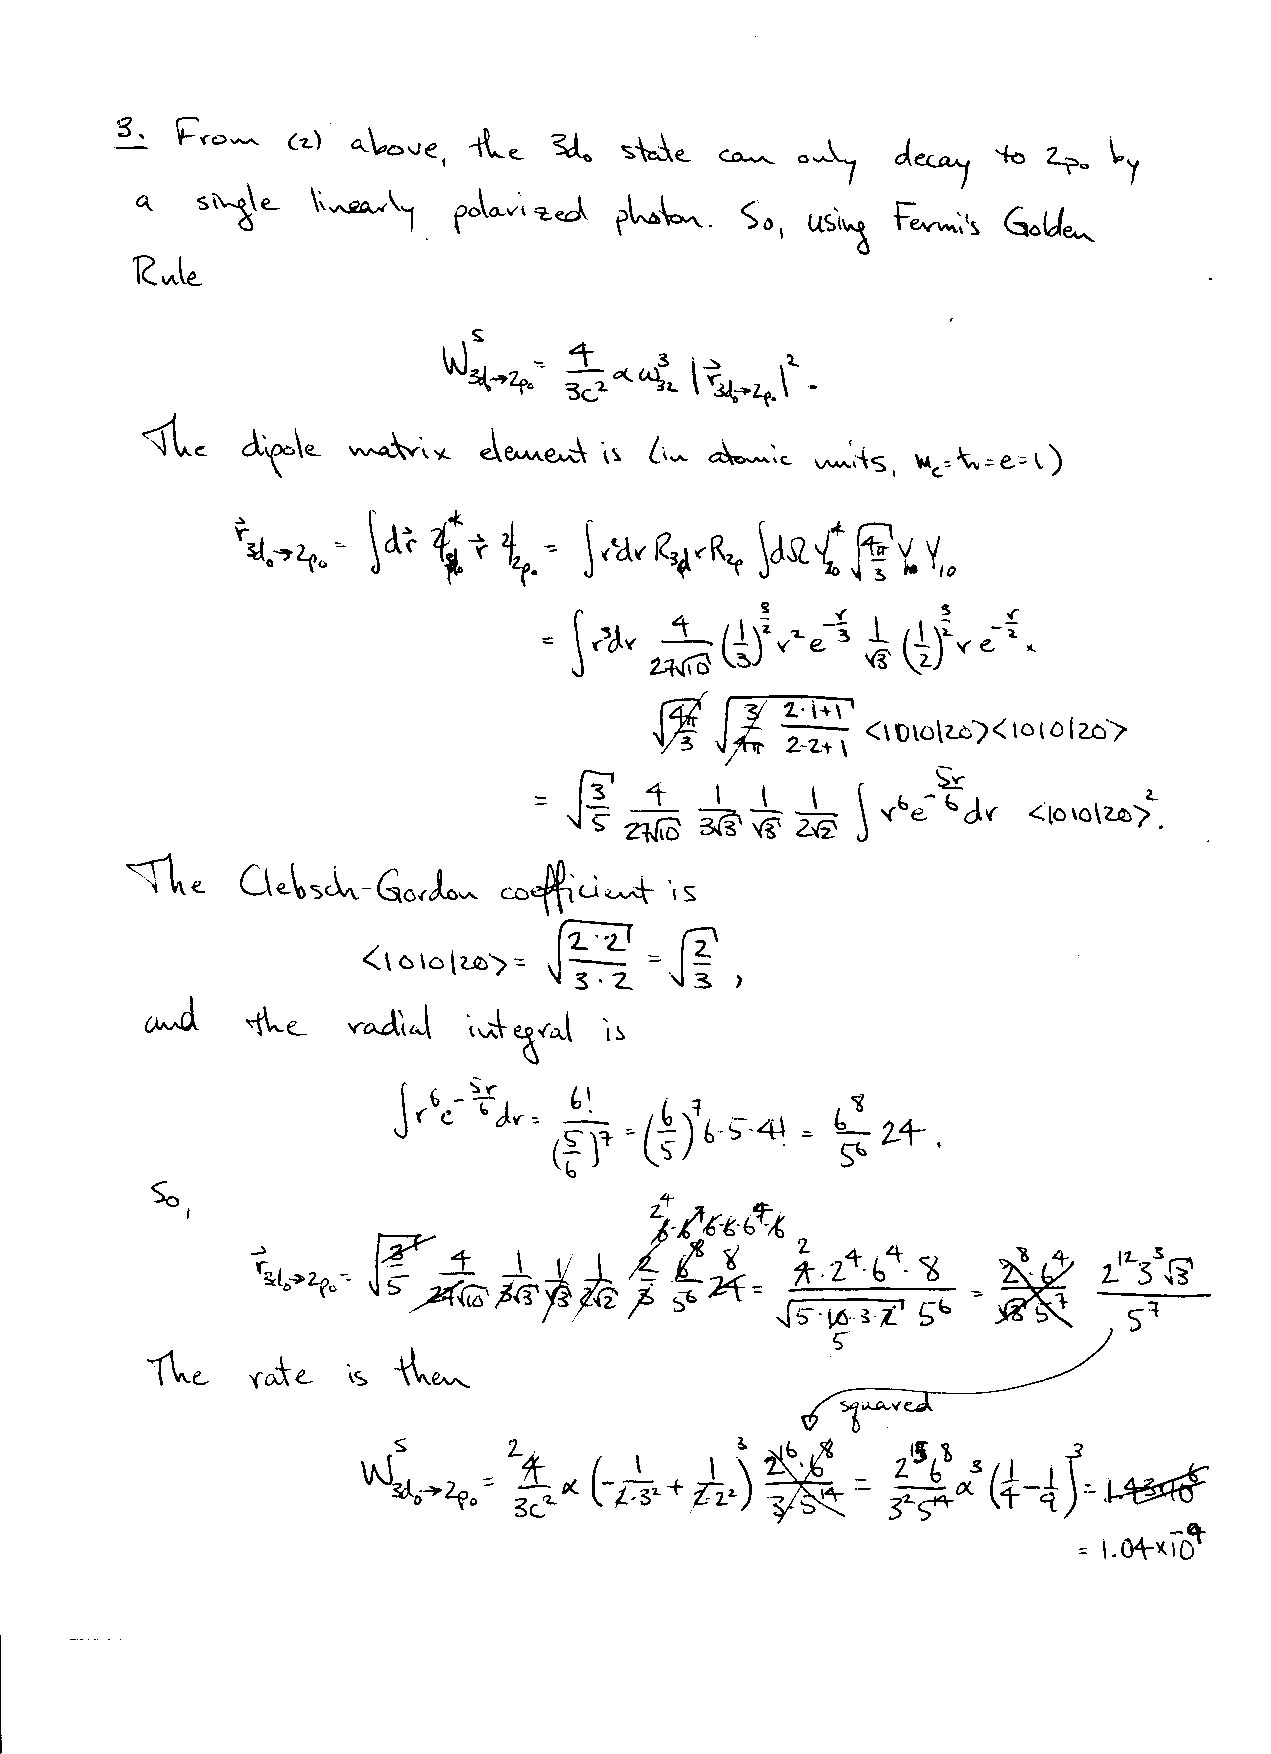 3. From (2) above, the 3d₀ state can only decay to 2p₀ by
a single linearly polarized photon. So, using Fermi's Golden
Rule
W^s_{3d₀→2p₀} = 4/(3c²) α ω³_{32} |r⃗_{3d₀→2p₀}|² .
The dipole matrix element is (in atomic units, m_e=ħ=e=1)
r⃗_{3d₀→2p₀} = ∫dr⃗ ψ* r⃗ ψ_{2p₀} = ∫r²dr R_{3d} r R_{2p} ∫dΩ Y*_{20} √(4π/3) Y_{10} Y_{10}
= ∫r³dr 4/(27√10) (1/3)^{3/2} r² e^{-r/3} 1/√3 (1/2)^{3/2} r e^{-r/2} ×
√(4π/3) √(3/4π (2·1+1)/(2·2+1)) <1010|20><1010|20>
= √(3/5) 4/(27√10) 1/(3√3) 1/√3 1/(2√2) ∫ r⁶ e^{-5r/6} dr <1010|20>² .
The Clebsch-Gordon coefficient is
<1010|20> = √(2·2/(3·2)) = √(2/3) ,
and the radial integral is
∫r⁶ e^{-5r/6} dr = 6!/(5/6)⁷ = (6/5)⁷ 6·5·4! = 6⁸/5⁶ 24 .
So,
r⃗_{3d₀→2p₀} = √(3/5) 4/(27√10) 1/(3√3) 1/√3 1/(2√2) 2/3 6⁸/5⁶ 24 = 4·2⁴·6⁴·8/(√(5·10·3·2) 5⁶) = 2¹²3³√3/5⁷
The rate is then
squared
W^s_{3d₀→2p₀} = 4/(3c²) α (-1/(2·3²) + 1/(2·2²))³ = 2¹⁵6⁸/(3²5¹⁴) α³ (1/4 - 1/9)³ =
= 1.04×10⁻⁴